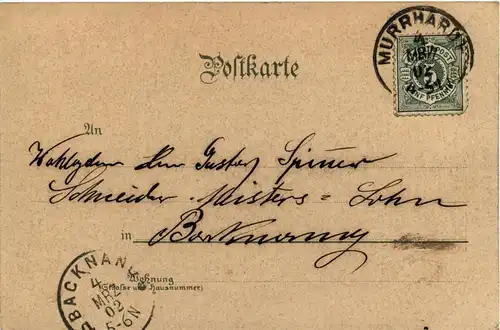 MURRHARDT
4
MRZ
02
Postkarte
FÜNF PFENNIG
An
Wohlgeboren Herrn Gustav
Schneider Meisters = Sohn
in Backnang
Wohnung
(Straße und Hausnummer)
BACKNANG
4
MRZ
02
5-6N